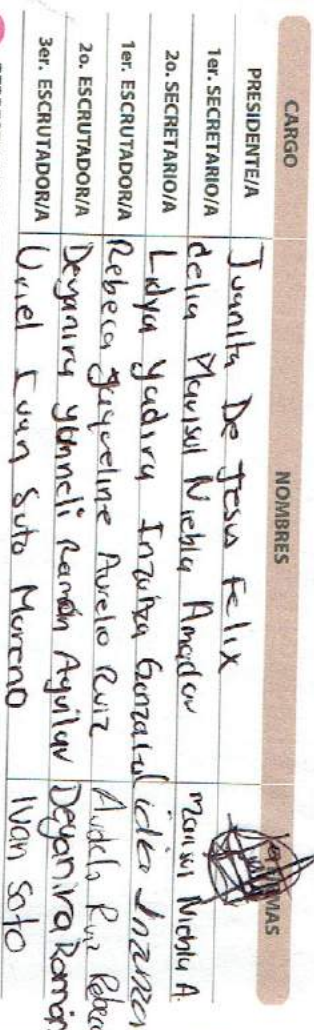 CARGO NOMBRES FIRMAS
PRESIDENTE/A Juanita De Jesus Felix
1er. SECRETARIO/A delia Marisol Niebla Amador Marisol Niebla A.
2o. SECRETARIO/A Lidya Yadira Inzunza Gonzalez lidia Inzunza
1er. ESCRUTADOR/A Rebeca Jaqueline Aurelio Ruiz Aurelio Ruiz Rebeca
2o. ESCRUTADOR/A Deyanira Ramón Aguilar Deyanira Román
3er. ESCRUTADOR/A Uriel Ivan Soto Moreno Ivan Soto